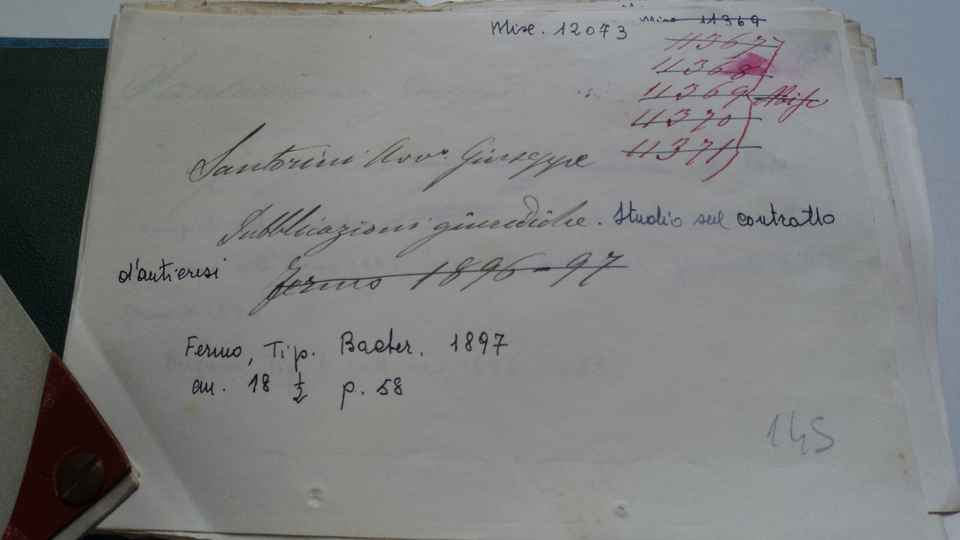 Misc. 12073 Misc 11369
11367
11368
11369 Misc
11370
11371
Santorini Avv.º Giuseppe
Pubblicazioni giuridiche. Studio sul contratto
d'anticresi
Fermo 1896-97
Fermo, Tip. Bacher. 1897
cm. 18 ½ p. 58
145